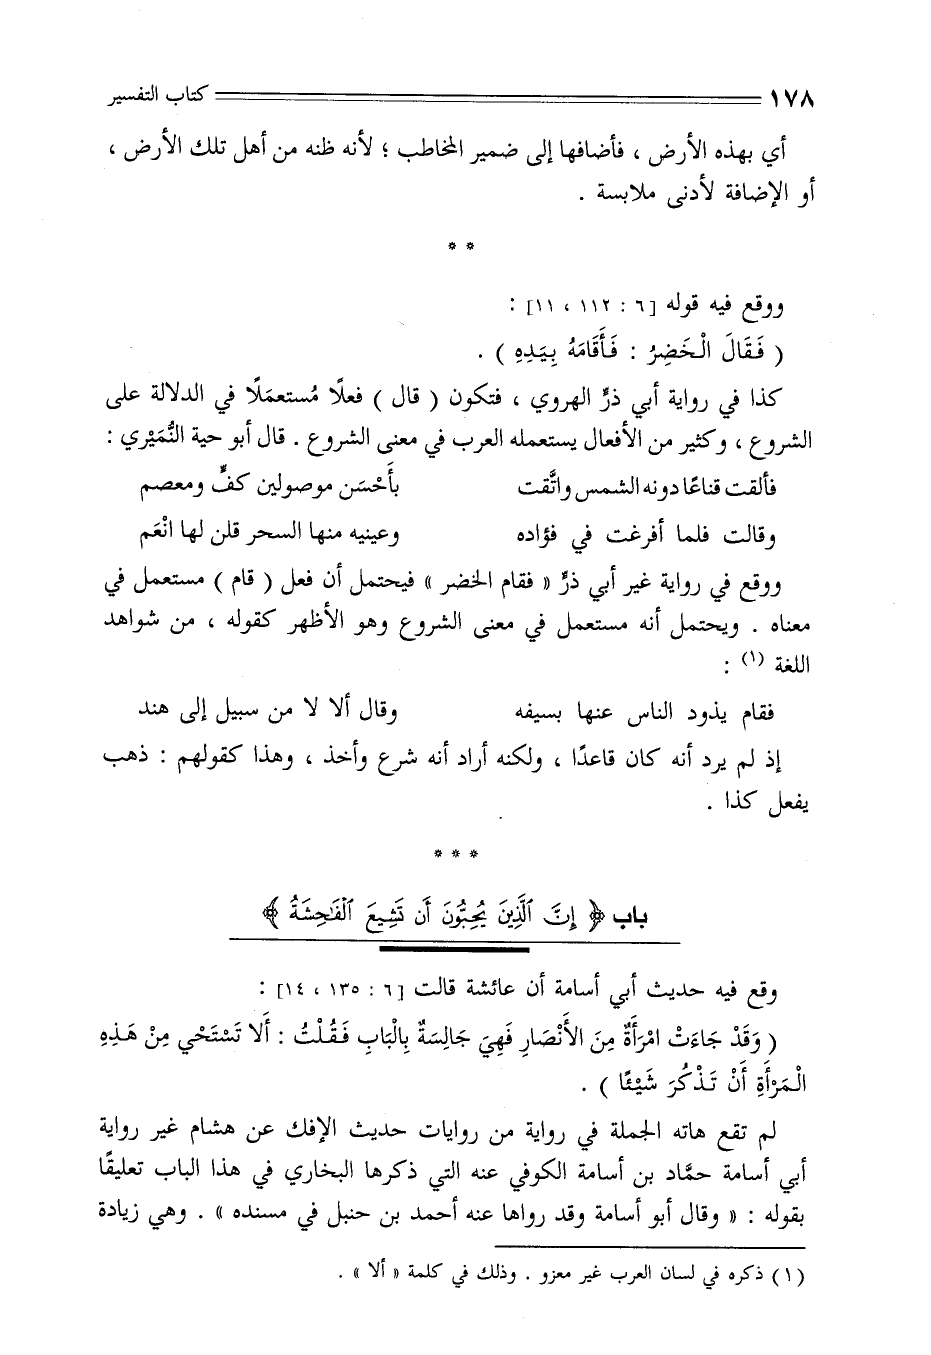 ١٧٨ كتاب التفسير
أي بهذه الأرض ، فأضافها إلى ضمير المخاطب ؛ لأنه ظنه من أهل تلك الأرض ،
أو الإضافة لأدنى ملابسة .
* *
ووقع فيه قوله [٦ : ١١٢ ، ١١] :
( فَقَالَ الْخَضِرُ : فَأَقَامَهُ بِيَدِهِ ) .
كذا في رواية أبي ذرٍّ الهروي ، فتكون ( قال ) فعلًا مُستعمَلًا في الدلالة على
الشروع ، وكثير من الأفعال يستعمله العرب في معنى الشروع . قال أبو حية النُّمَيْري :
فألقت قناعًا دونه الشمس واتَّقت بأَحْسَن موصولين كفٍّ ومعصم
وقالت فلما أفرغت في فؤاده وعينيه منها السحر قلن لها انْعَم
ووقع في رواية غير أبي ذرٍّ « فقام الخضر » فيحتمل أن فعل ( قام ) مستعمل في
معناه . ويحتمل أنه مستعمل في معنى الشروع وهو الأظهر كقوله ، من شواهد
اللغة (١) :
فقام يذود الناس عنها بسيفه وقال ألا لا من سبيل إلى هند
إذ لم يرد أنه كان قاعدًا ، ولكنه أراد أنه شرع وأخذ ، وهذا كقولهم : ذهب
يفعل كذا .
* * *
باب ﴿ إِنَّ ٱلَّذِينَ يُحِبُّونَ أَن تَشِيعَ ٱلْفَـٰحِشَةُ ﴾
وقع فيه حديث أبي أسامة أن عائشة قالت [٦ : ١٣٥ ، ١٤] :
( وَقَدْ جَاءَتْ امْرَأَةٌ مِنَ الأَنْصَارِ فَهِيَ جَالِسَةٌ بِالْبَابِ فَقُلْتُ : أَلَا تَسْتَحْي مِنْ هَـذِهِ
الْمَرْأَةِ أَنْ تَذْكُرَ شَيْئًا ) .
لم تقع هاته الجملة في رواية من روايات حديث الإفك عن هشام غير رواية
أبي أسامة حمَّاد بن أسامة الكوفي عنه التي ذكرها البخاري في هذا الباب تعليقًا
بقوله : « وقال أبو أسامة وقد رواها عنه أحمد بن حنبل في مسنده » . وهي زيادة
(١) ذكره في لسان العرب غير معزو . وذلك في كلمة « ألا » .